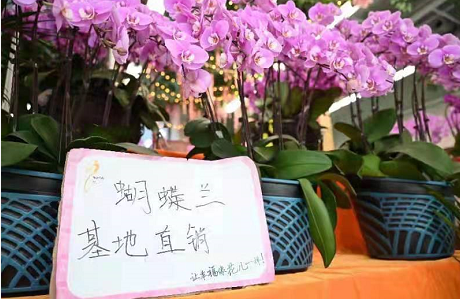 蝴蝶兰
基地直销
让幸福像花儿一样!